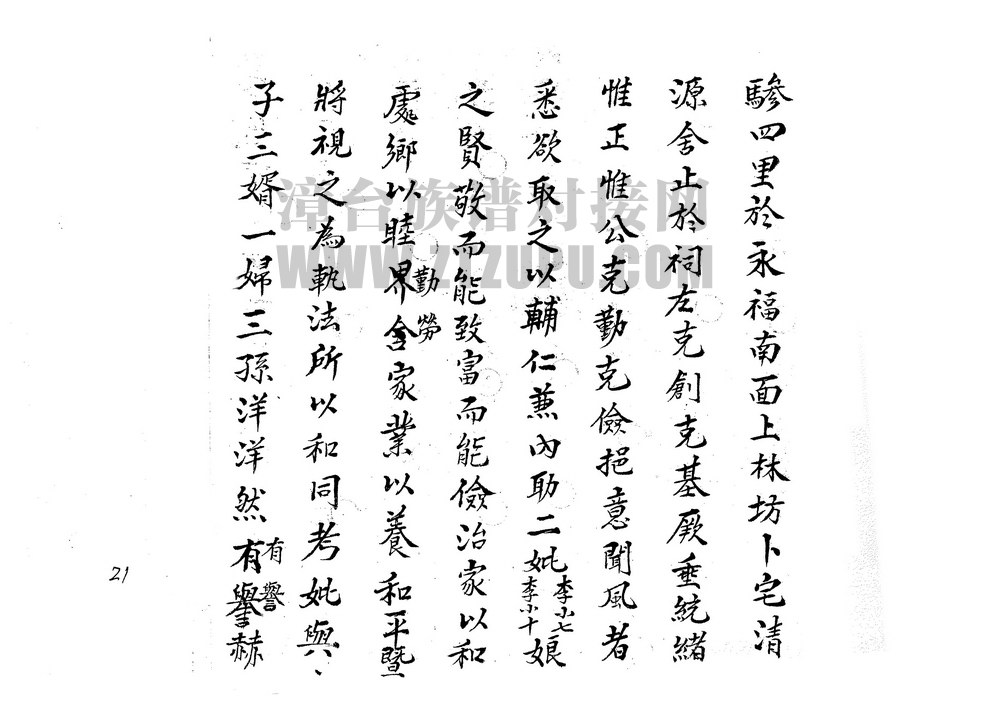 驂四里於永福南面上林坊卜宅清
源舍止於祠左克創克基厥垂統緒
惟正惟公克勤克儉挹意聞風者
悉欲取之以輔仁兼內助二妣李小七李小十娘
之賢敬而能致富而能儉治家以和
處鄉以睦界勤勞舍家業以養和平暨
將視之為執法所以和同考妣與、
子三婿一婦三孫洋洋然有譽有譽赫
漳台族谱对接网
WWW.ZTZUPU.COM
21